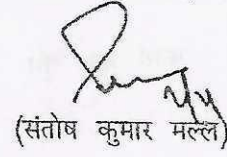 (संतोष कुमार मल्ल)